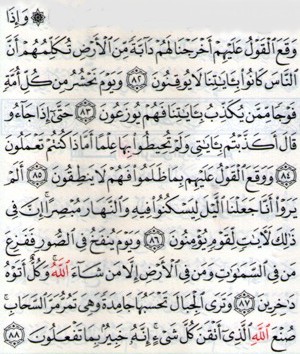 ۞ وَإِذَا
وَقَعَ ٱلْقَوْلُ عَلَيْهِمْ أَخْرَجْنَا لَهُمْ دَآبَّةً مِّنَ ٱلْأَرْضِ تُكَلِّمُهُمْ أَنَّ
ٱلنَّاسَ كَانُوا۟ بِـَٔايَـٰتِنَا لَا يُوقِنُونَ ٨٢ وَيَوْمَ نَحْشُرُ مِن كُلِّ أُمَّةٍ
فَوْجًا مِّمَّن يُكَذِّبُ بِـَٔايَـٰتِنَا فَهُمْ يُوزَعُونَ ٨٣ حَتَّىٰٓ إِذَا جَآءُو
قَالَ أَكَذَّبْتُم بِـَٔايَـٰتِى وَلَمْ تُحِيطُوا۟ بِهَا عِلْمًا أَمَّاذَا كُنتُمْ تَعْمَلُونَ
٨٤ وَوَقَعَ ٱلْقَوْلُ عَلَيْهِم بِمَا ظَلَمُوا۟ فَهُمْ لَا يَنطِقُونَ ٨٥ أَلَمْ
يَرَوْا۟ أَنَّا جَعَلْنَا ٱلَّيْلَ لِيَسْكُنُوا۟ فِيهِ وَٱلنَّهَارَ مُبْصِرًا ۚ إِنَّ فِى
ذَٰلِكَ لَـَٔايَـٰتٍ لِّقَوْمٍ يُؤْمِنُونَ ٨٦ وَيَوْمَ يُنفَخُ فِى ٱلصُّورِ فَفَزِعَ
مَن فِى ٱلسَّمَـٰوَٰتِ وَمَن فِى ٱلْأَرْضِ إِلَّا مَن شَآءَ ٱللَّهُ ۚ وَكُلٌّ أَتَوْهُ
دَٰخِرِينَ ٨٧ وَتَرَى ٱلْجِبَالَ تَحْسَبُهَا جَامِدَةً وَهِىَ تَمُرُّ مَرَّ ٱلسَّحَابِ ۚ
صُنْعَ ٱللَّهِ ٱلَّذِىٓ أَتْقَنَ كُلَّ شَىْءٍ ۚ إِنَّهُۥ خَبِيرٌۢ بِمَا تَفْعَلُونَ ٨٨